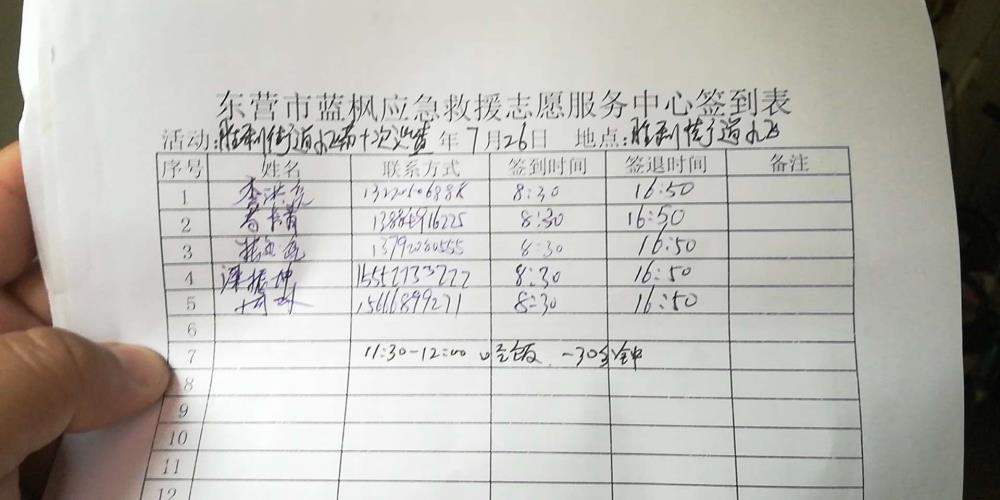 东营市蓝枫应急救援志愿服务中心签到表
活动:胜利街道 第十次 年 7月26日 地点:胜利街道
序号 姓名 联系方式 签到时间 签退时间 备注
1 李洪 8:30 16:50
2 8:30 16:50
3 13792080555 8:30 16:50
4 梁振坤 15552733222 8:30 16:50
5 15666899271 8:30 16:50
6
7 11:30-12:00 吃饭 -30分钟
8
9
10
11
12